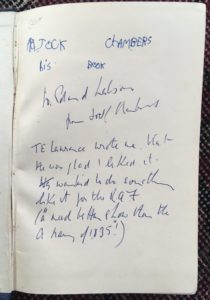 JOCK CHAMBERS
his BOOK
to Edward
from Jock Chambers
TE Lawrence wrote me that
He was glad I liked it.
He wanted to do something
like it for the RAF
(a much better show than the
Army of 1835!)